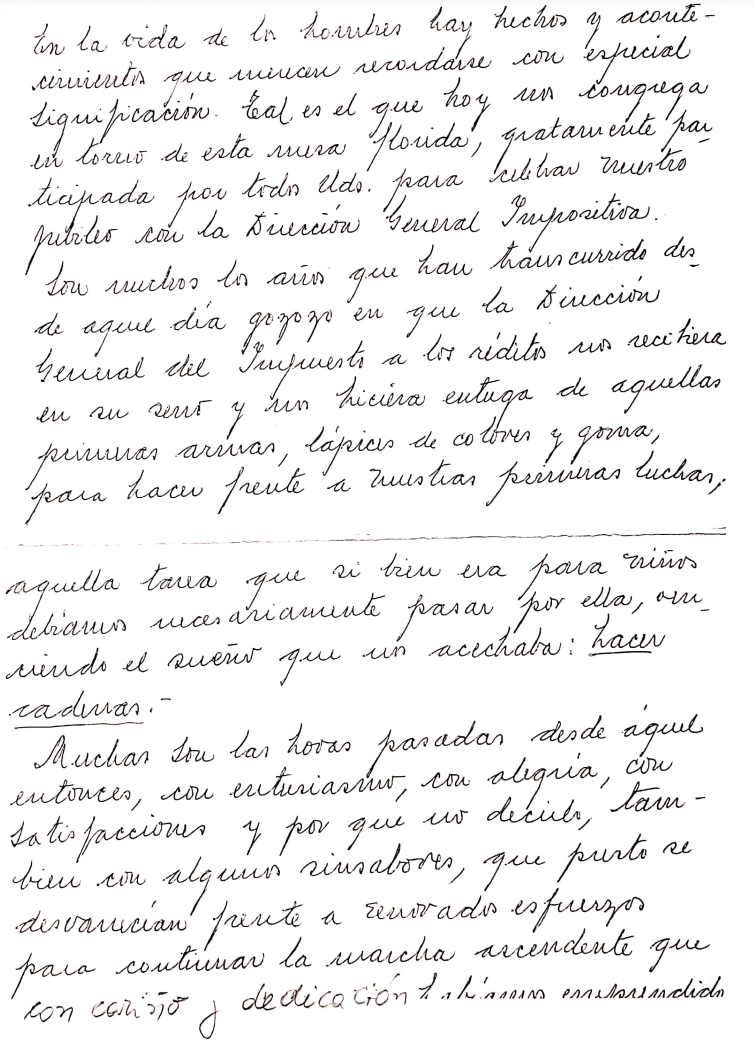 En la vida de los hombres hay hechos y aconte-
cimientos que merecen recordarse con especial
significación. Tal es el que hoy nos congrega
en torno de esta mesa florida, gratamente par-
ticipada por todos Uds. para celebrar nuestro
jubileo con la Dirección General Impositiva.
Son muchos los años que han transcurrido des-
de aquel día gozozo en que la Dirección
General del Impuesto a los réditos nos recibiera
en su seno y nos hiciéra entrega de aquellas
primeras armas, lápices de colores y goma,
para hacer frente a nuestras primeras luchas,
aquella tarea que si bien era para niños
debíamos necesariamente pasar por ella, ven-
ciendo el sueño que nos acechaba: hacer
cadenas.-
Muchas son las horas pasadas desde áquel
entonces, con entusiasmo, con alegría, con
satisfacciones y por que no decirlo, tam-
bien con algunos sinsabores, que pronto se
desvanecían frente a renovados esfuerzos
para continuar la marcha ascendente que
con cariño y dedicación habíamos emprendido